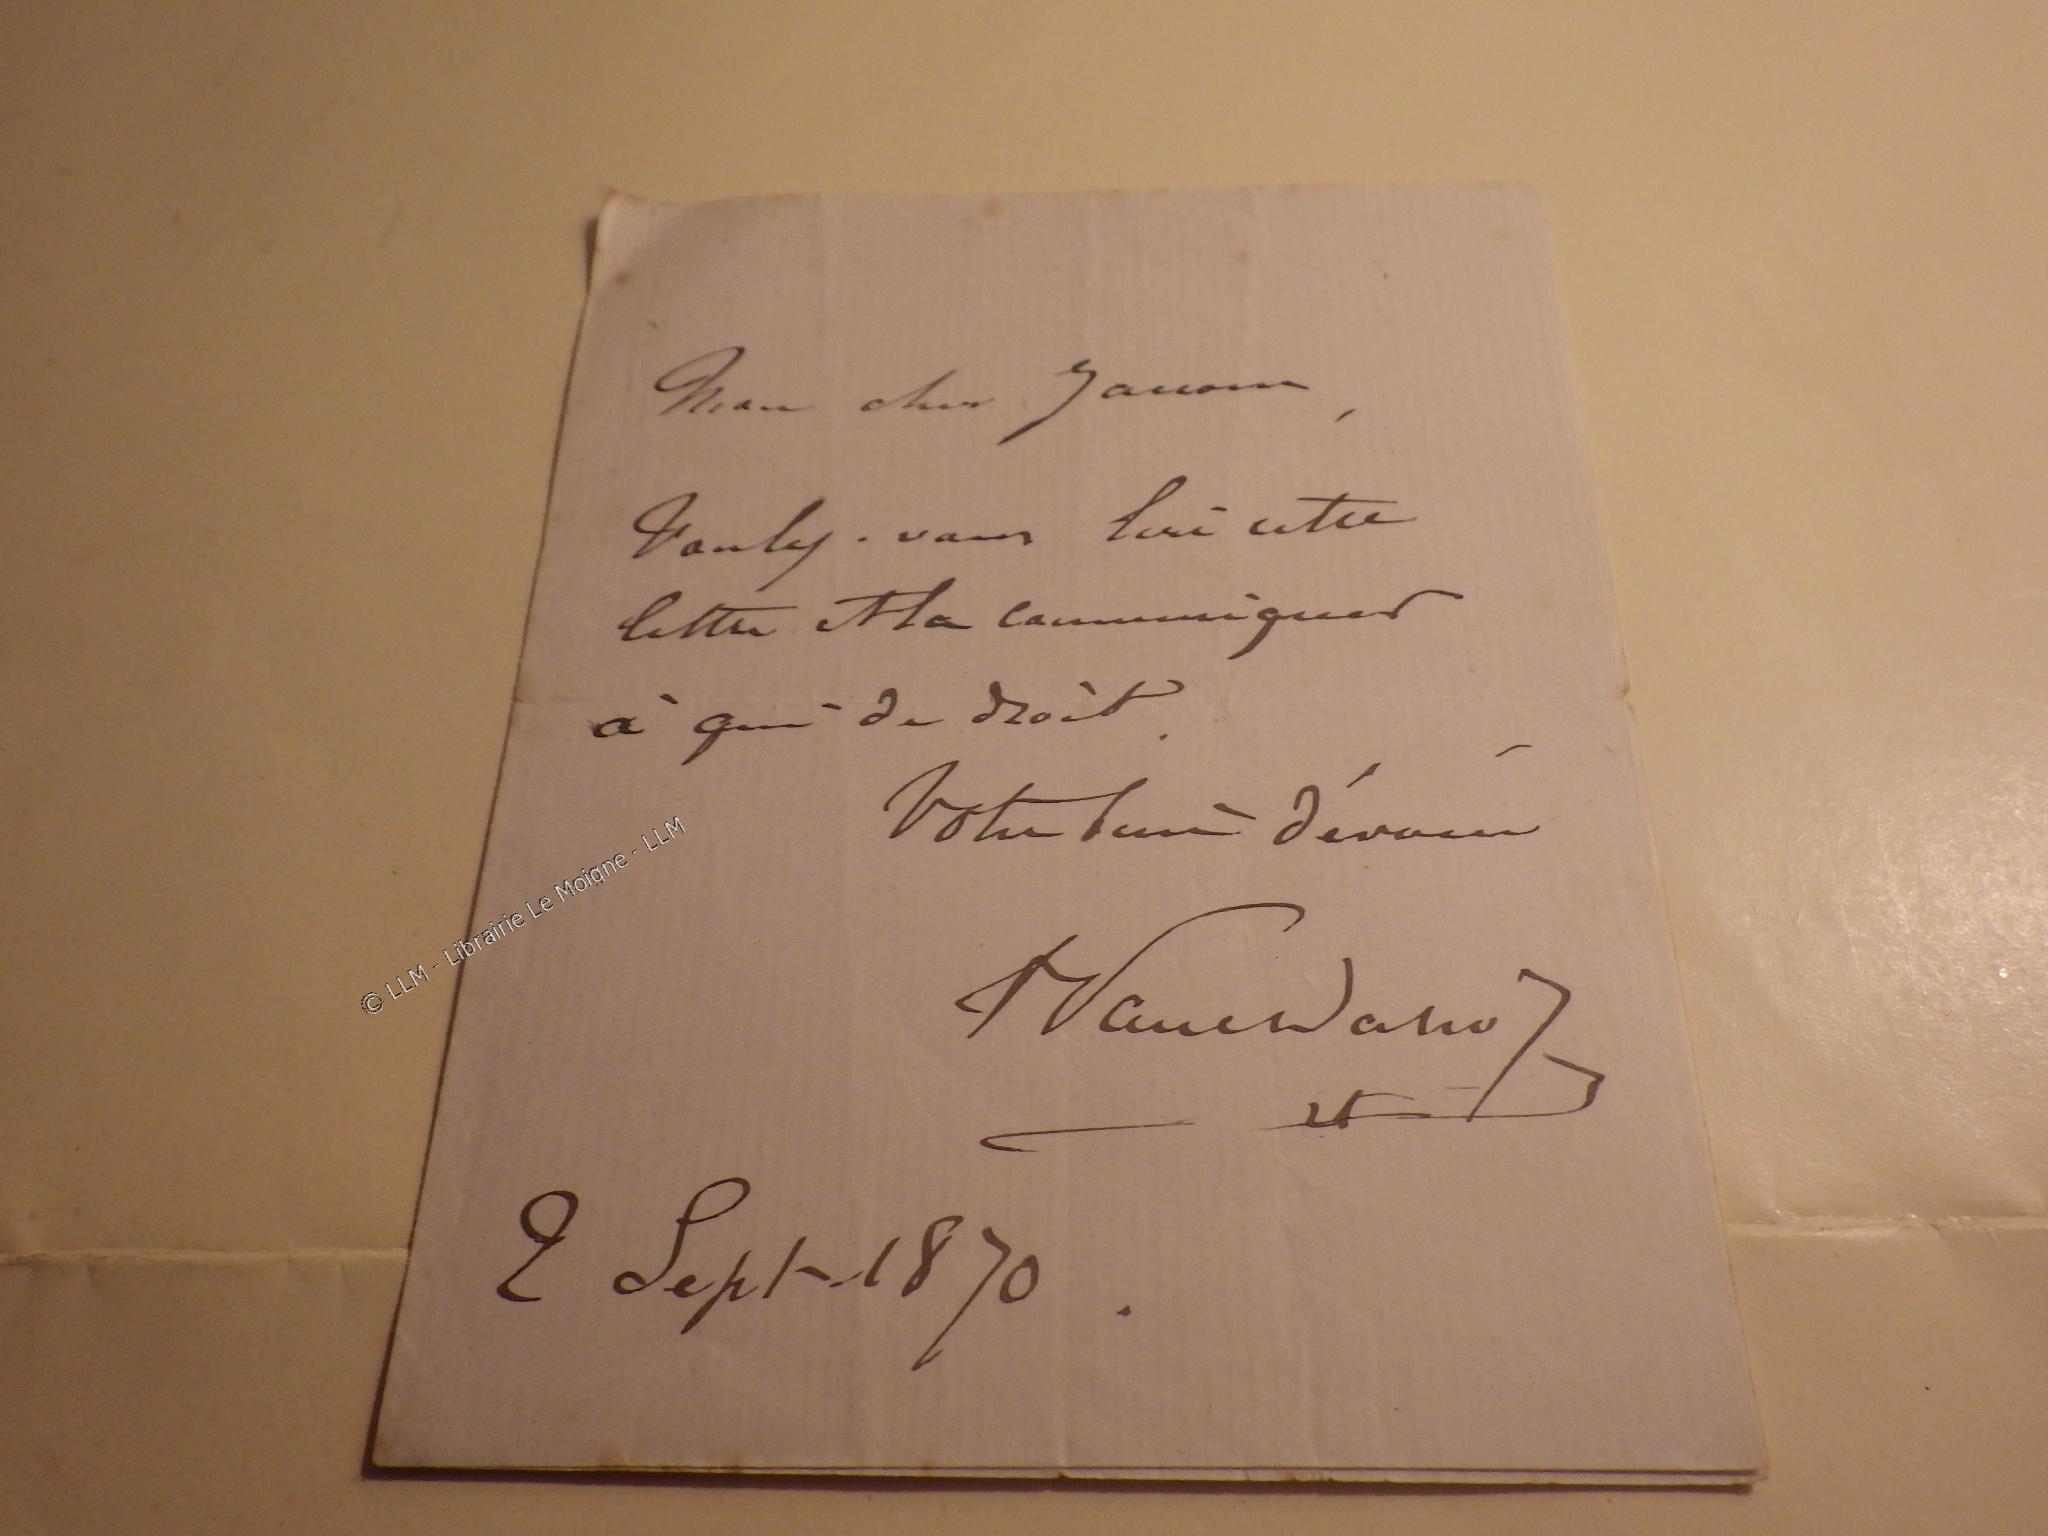 Mon cher
Voulez-vous lire cette
lettre et la communiquer
à qui de droit.
Votre bien dévoué
2 Sept. 1870.
© LLM - Librairie Le Moigne - LLM